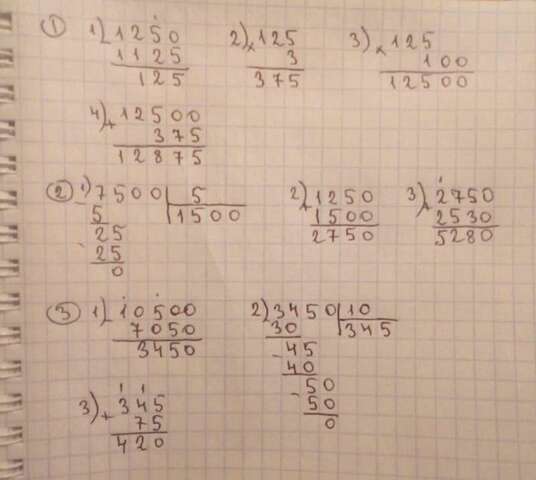 ① 1) - 1250 2) × 125 3) × 125
1125 3 100
125 375 12500
4) + 12500
375
12875
② 1) - 7500 | 5 2) + 1250 3) + 2750
5 1500 1500 2530
25 2750 5280
- 25
0
③ 1) - 10500 2) 3450 | 10
7050 30 345
3450 - 45
40
3) + 345 - 50
75 50
420 0